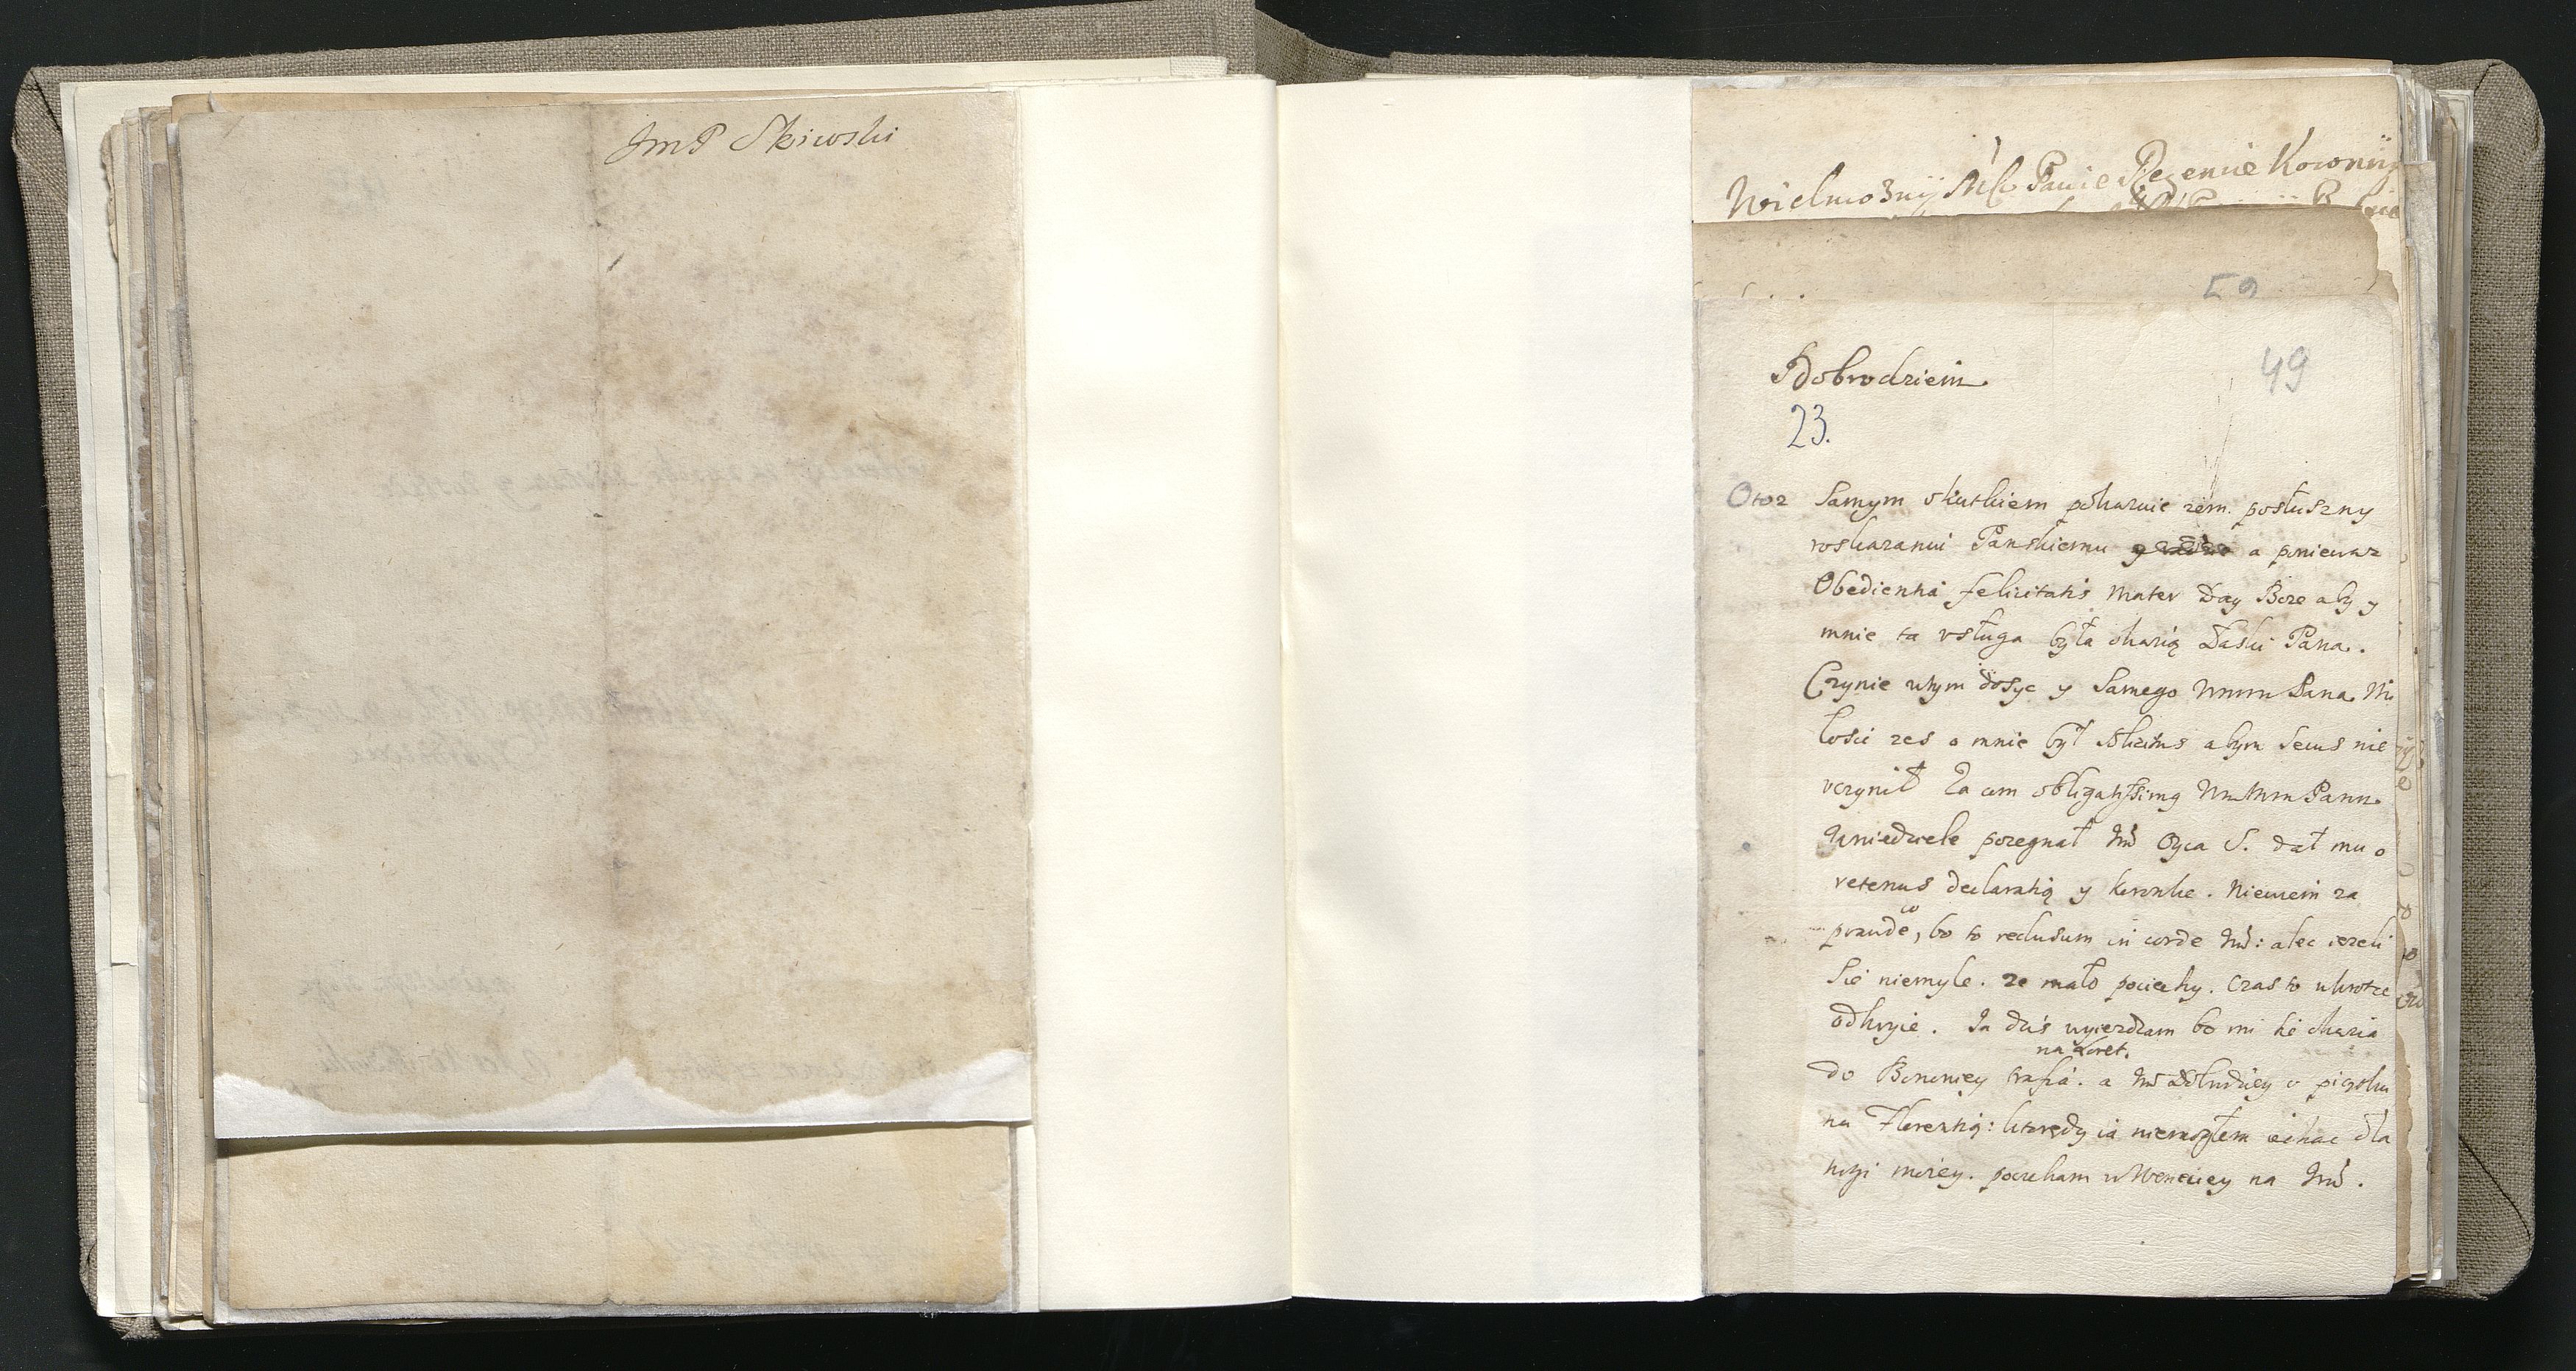 JmP Skiwski
Wielmozny Mſc Panie Regencie Koronny
59
49
Dobrodzieiu.
23.
Otoz Samym skutkiem pokazuie zem posłuszny
roskazaniu Panskiemu a poniewaz
Obedientia felicitatis Mater Day Boze aby y
mnie ta vsługa była okazią Łaski Pana.
Czynie wtym dosyc y Samego Wmm Pana Mi
łosci zes o mnie był solicitus abym Secus nie
vczynił Za com obligatissimą Wm Mm Panu.
Wniedziele pozegnał Jmś Oyca S. dał mu o
retenus declaratią y koronke. Niewiem za
prawde co, bo to reclusum in corde Jmś: alec iezeli
Sie niemyle. ze mało pociechy. Czas to wkrotce
odkryie. Ja dziś wyiezdzam bo mi się okazia
na Loret.
do Bononiey trafia. a Jmś
na Florentią: ktorędy ia niemogłem iechac dla
nogi moiey. poczekam w Weneciey na Jmś.